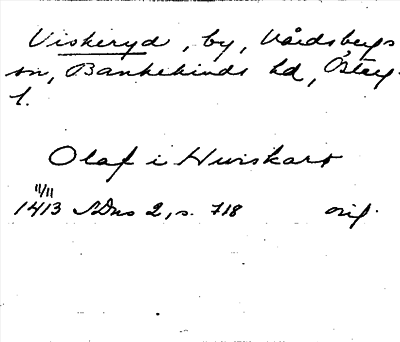 Viskeryd, by, Vårdsbergs
sn, Bankekinds hd, Österg.
l.
Olaf i Hwiskaro
11/11
1413 SDns 2, s. 718 orig.